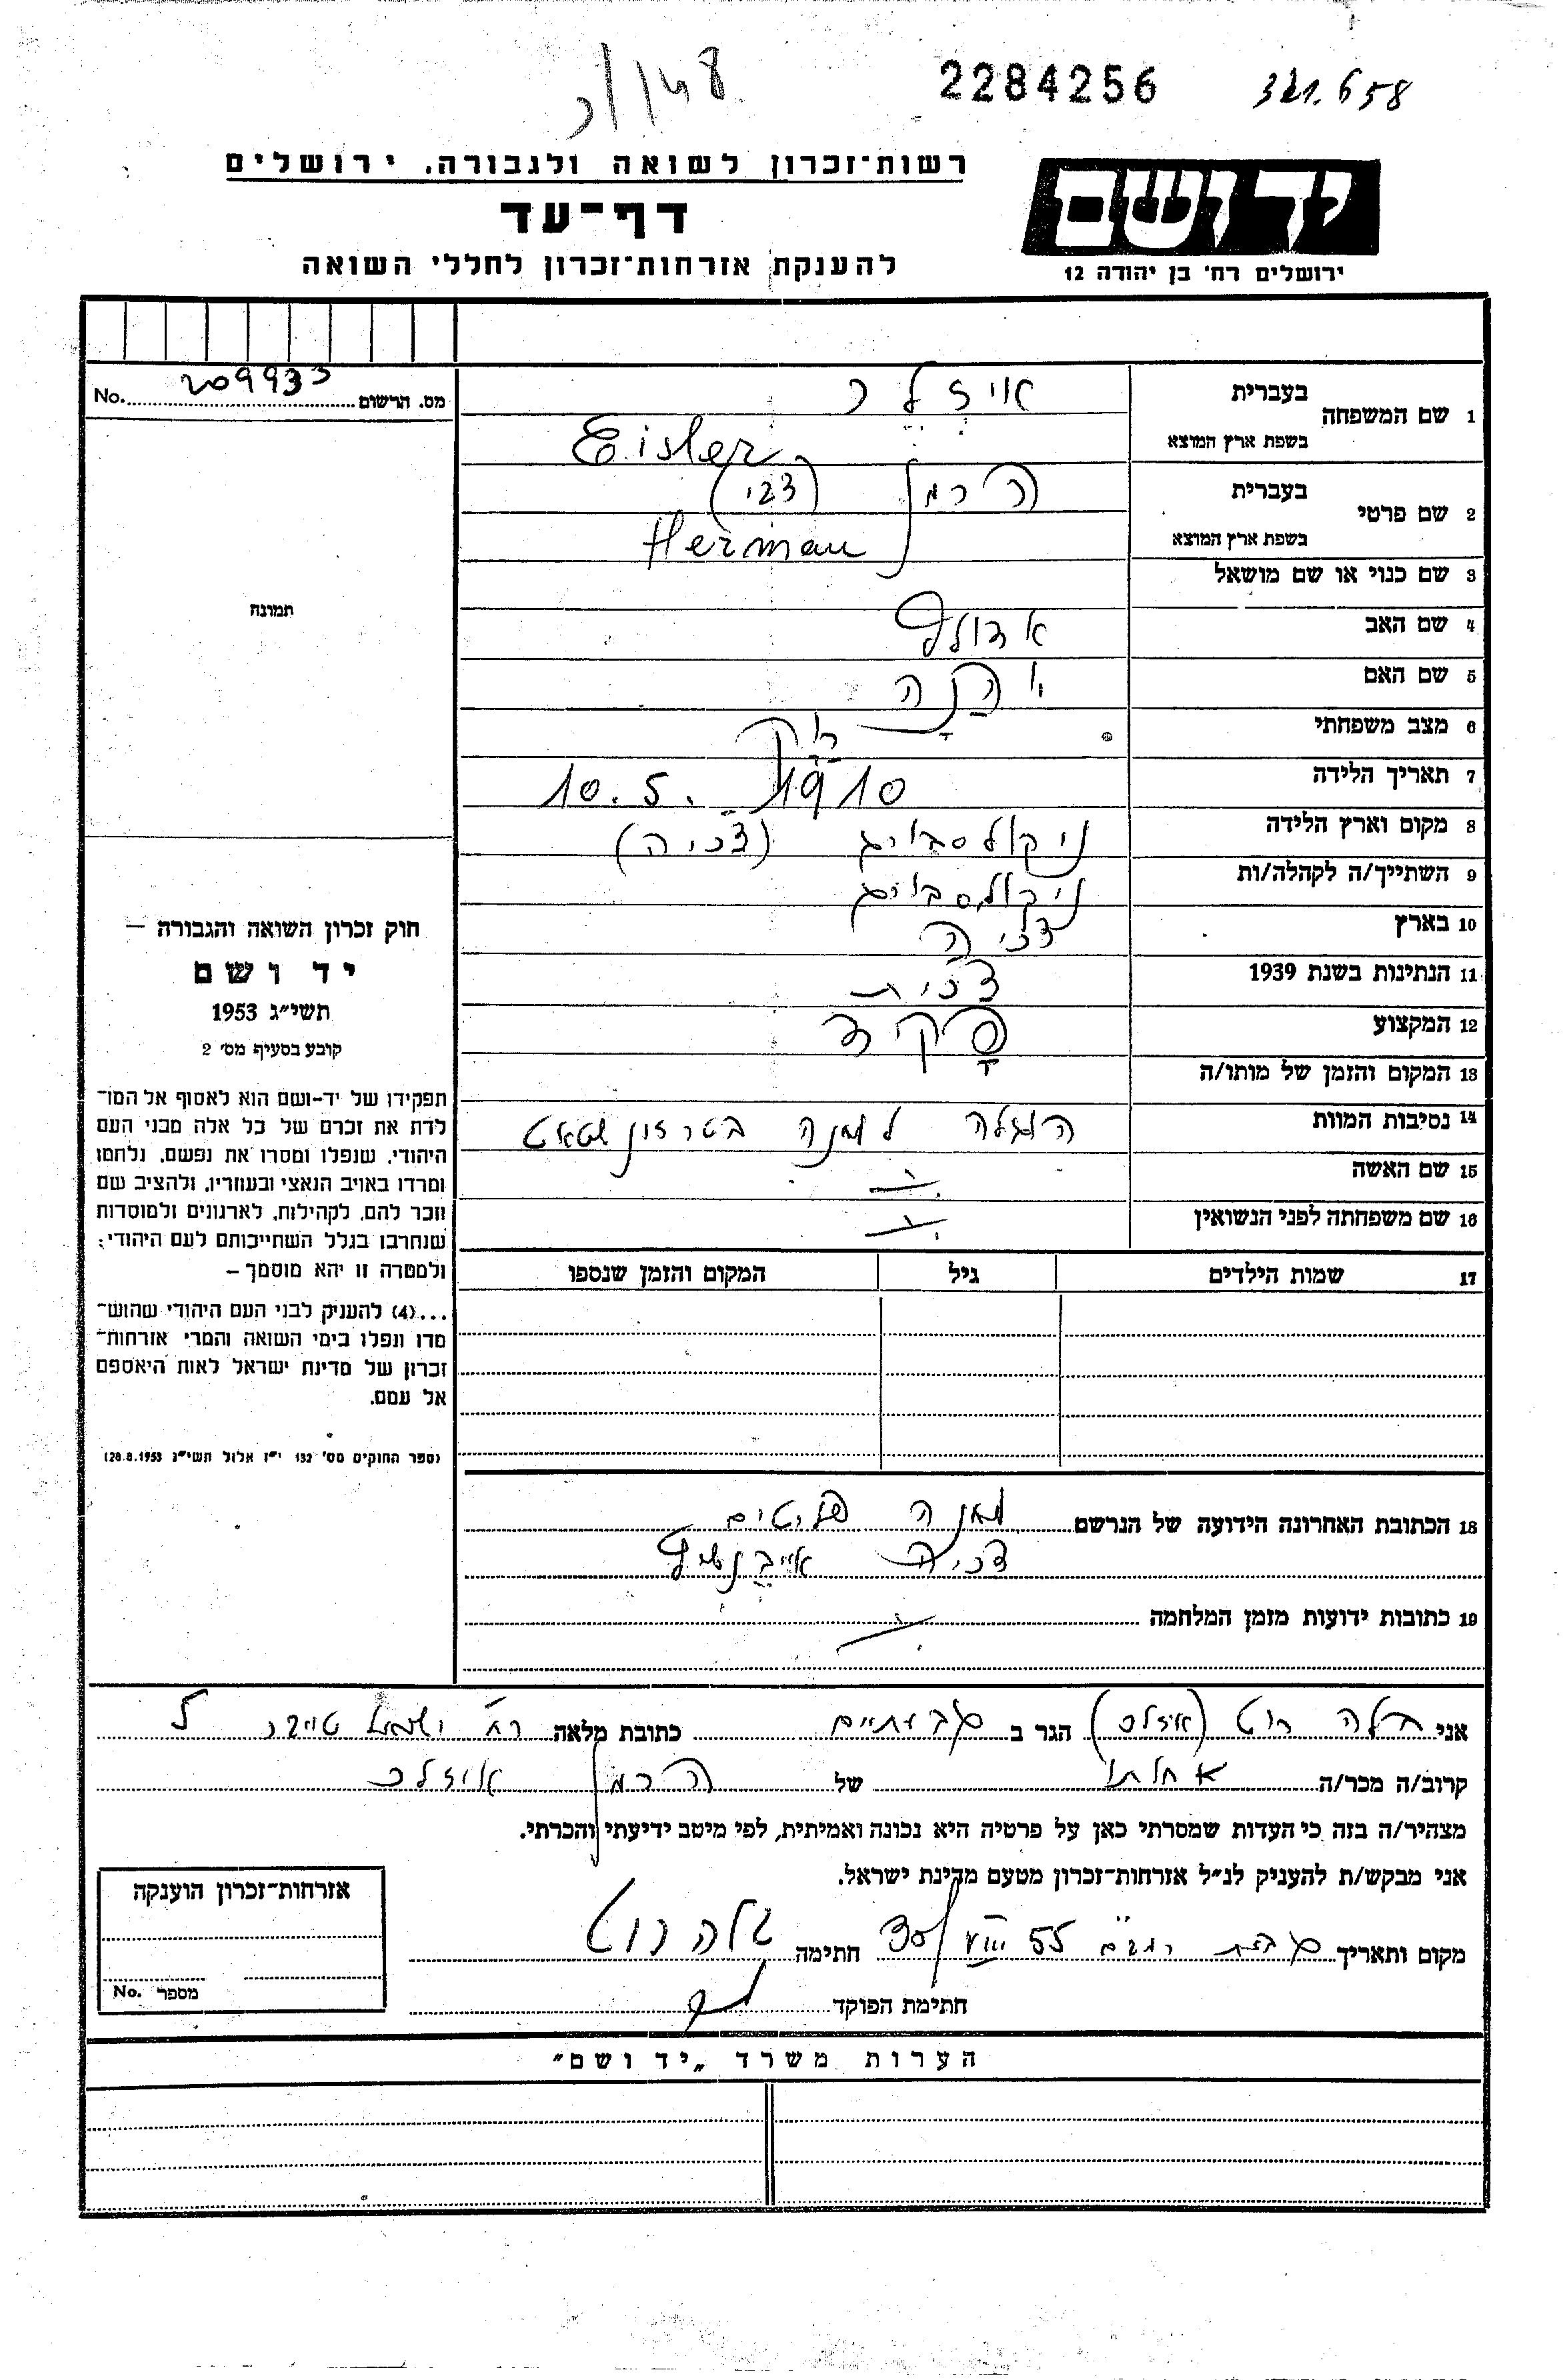 2284256
321.658
רשות־זכרון לשואה ולגבורה. ירושלים
דף־עד
להענקת אזרחות־זכרון לחללי השואה
יד ושם
ירושלים רח' בן יהודה 12
מס. הרשום 209933 No.
1 שם המשפחה
בעברית אייזלר
בשפת ארץ המוצא Eisler
2 שם פרטי
בעברית הרמן (צבי)
בשפת ארץ המוצא Herman
3 שם כנוי או שם מושאל
4 שם האב אדולף
5 שם האם
6 מצב משפחתי רוק
7 תאריך הלידה 10.5.1910
8 מקום וארץ הלידה ניקולסבורג (צכיה)
9 השתייך/ה לקהלה/ות ניקולסבורג
10 בארץ צכיה
11 הנתינות בשנת 1939 צכית
12 המקצוע פקיד
13 המקום והזמן של מותו/ה
14 נסיבות המוות הובלה למחנה בטרזינשטאט
15 שם האשה
16 שם משפחתה לפני הנשואין
17 שמות הילדים גיל המקום והזמן שנספו
תמונה
חוק זכרון השואה והגבורה —
יד ושם
תשי״ג 1953
קובע בסעיף מס' 2
תפקידו של יד-ושם הוא לאסוף אל המו־
לדת את זכרם של כל אלה מבני העם
היהודי, שנפלו ומסרו את נפשם, נלחמו
ומרדו באויב הנאצי ובעוזריו, ולהציב שם
וזכר להם, לקהילות, לארגונים ולמוסדות
שנחרבו בגלל השתייכותם לעם היהודי;
ולמטרה זו יהא מוסמך –
...(4) להעניק לבני העם היהודי שהוש־
מדו ונפלו בימי השואה והמרי אזרחות־
זכרון של מדינת ישראל לאות היאספם
אל עמם.
(ספר החוקים מס' 132 י״ז אלול תשי״ג 28.8.1953)
18 הכתובת האחרונה הידועה של הנרשם מחנה פליטים
צכיה אייבנשיץ
19 כתובות ידועות מזמן המלחמה
אני בלה רוט (אייזלר) הגר ב גבעתיים כתובת מלאה רח' טייבר
קרוב/ה מכר/ה אחותו של הרמן אייזלר
מצהיר/ה בזה כי העדות שמסרתי כאן על פרטיה היא נכונה ואמיתית, לפי מיטב ידיעתי והכרתי.
אני מבקש/ת להעניק לנ״ל אזרחות־זכרון מטעם מדינת ישראל.
מקום ותאריך גבעת רמב״ם 30/VIII 55 חתימה בלה רוט
חתימת הפוקד
אזרחות־זכרון הוענקה
מספר No.
הערות משרד „יד ושם״